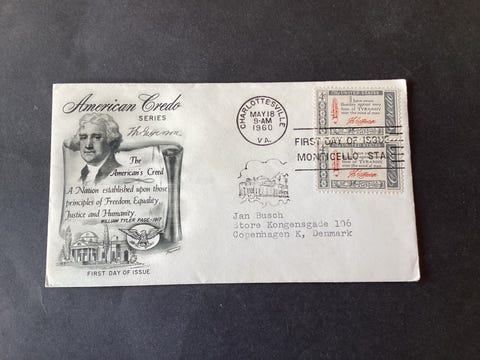 American Credo
SERIES
Th Jefferson
The
American's Creed
A Nation established upon those
principles of Freedom, Equality
Justice and Humanity.
WILLIAM TYLER PAGE-1917
FIRST DAY OF ISSUE
CHARLOTTESVILLE
MAY 18
9-AM
1960
VA.
UNITED STATES
I have sworn
Hostility against every
form of TYRANNY
over the mind of man
Th Jefferson
FIRST DAY OF ISSUE
MONTICELLO STA
UNITED STATES
form of TYRANNY
over the mind of man
Th Jefferson
Jan Busch
Store Kongensgade 106
Copenhagen K, Denmark